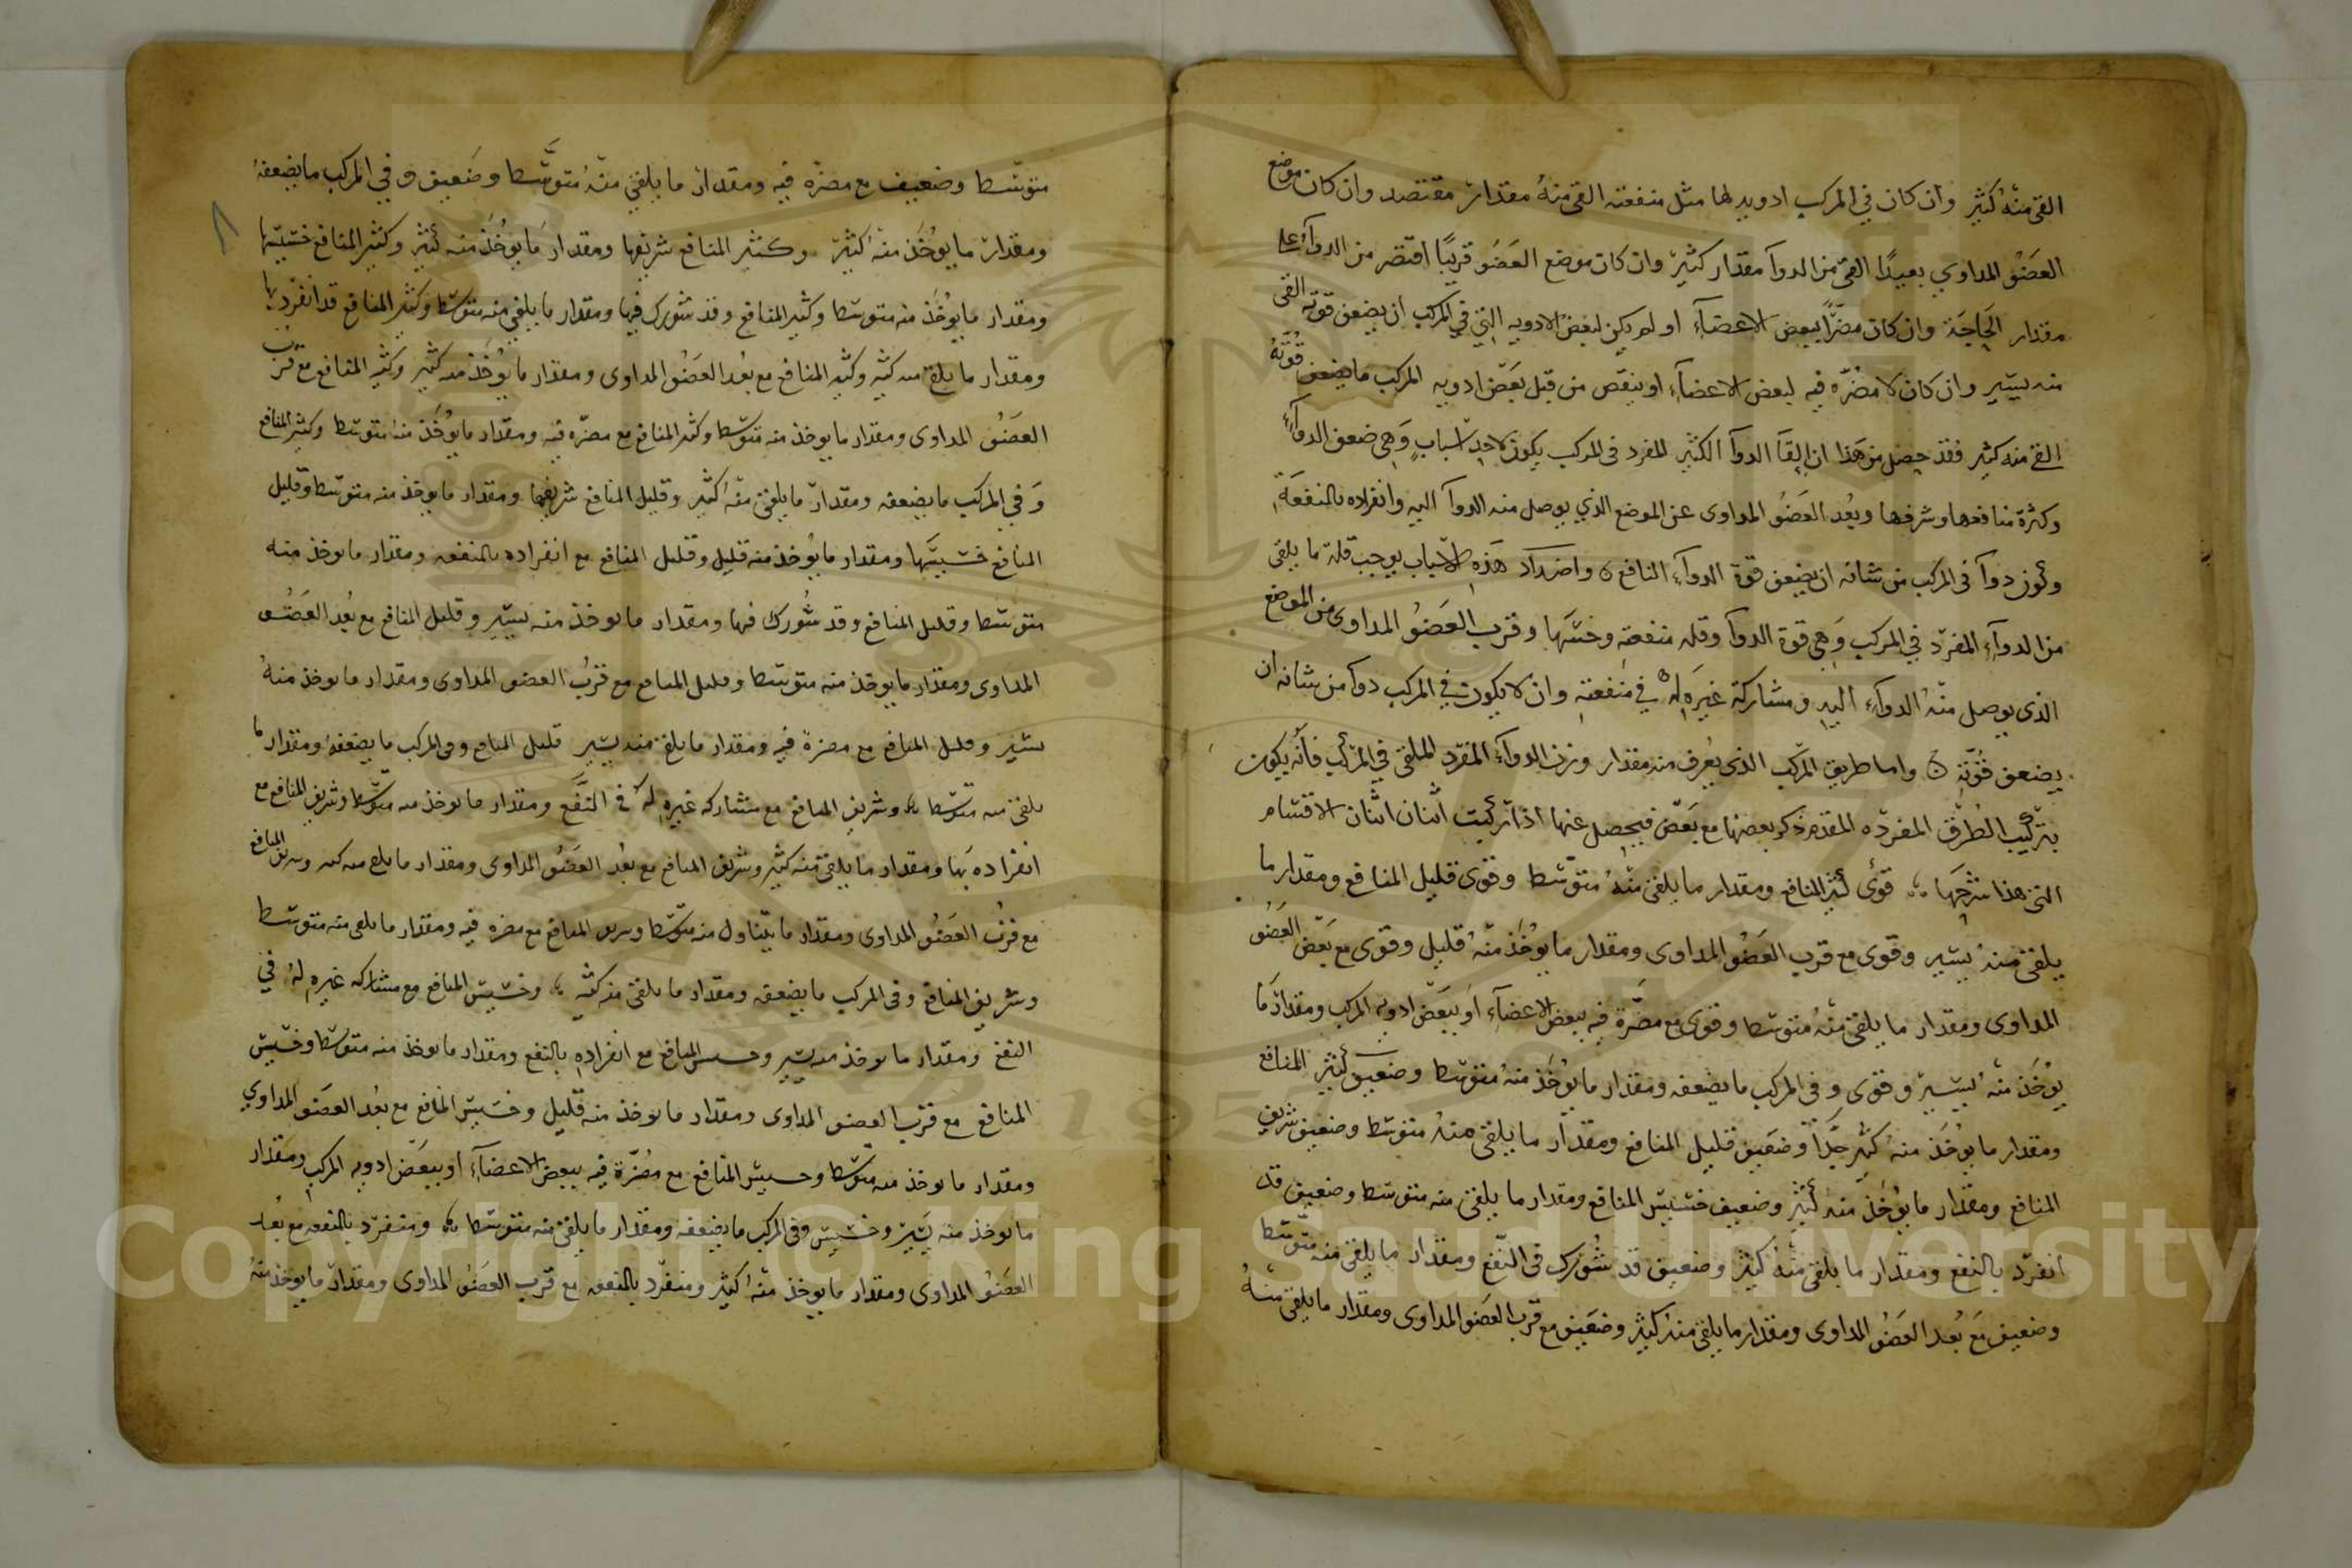 القى منه كثير وان كان في المركب ادويه لها مثل منفعته القى منه مقدار مقتصد وان كان موضع
العضو المداوي بعيدًا القى من الدوآ مقدار كثير وان كان موضع العضو قريبًا اقتصر من الدوآء على
مقدار الحاجة وان كان مضرًّا ببعض الاعضآء او لم يكن لبعض الادويه التي في المركب ان يضعف قوته القى
منه يسير وان كان لا مضرّه فيه لبعض الاعضآء او ينقص من قبل بعض ادويه المركب ما يضعف قوّته
القى منه كثير فقد حصل من هذا ان القآ الدوآ الكثير المفرد في المركب يكون لاحد اسبابٍ وهى ضعف الدوآء
وكثرة منافعها وشرفها وبُعد العضو المداوى عن الموضع الذي يوصل منه الدوآ اليه وانفراده بالمنفعة
وكون دوآ في المركب من شانه ان يضعف قوة الدوآء النافع ه واضداد هذه الاسباب يوجب قلة ما يلقى
من الدوآء المفرد في المركب وهى قوة الدوآ وقله منفعته وخسّتها وقرب العضو المداوى من الموضع
الذى يوصل منه الدوآء اليه ومشاركة غيره له في منفعته وان لا يكون في المركب دوآ من شانه ان
يضعف قوّته ه واما طريق المركب الذى يعرف منه مقدار وزن الدوآء المفرد الملقى في المركب فانه يكون
بتركيب الطرق المفرده المقدم ذكر بعضها مع بعض فيحصل عنها اذا تركبت اثنان اثنان الاقسام
التى هذا شرحها ؞ قوى كثير المنافع ومقدار ما يلقى منه متوسّطا وقوى قليل المنافع ومقدار ما
يلقى منه يسير وقوى مع قرب العضو المداوى ومقدار ما يؤخذ منه قليل وقوى مع بعض العضو
المداوى ومقدار ما يلقى منه متوسّطا وقوى مع مضرّة فيه ببعض الاعضآء او ببعض ادويه المركب ومقدار ما
يؤخذ منه يسير وقوى وفى المركب ما يضعفه ومقدار ما يؤخذ منه متوسّطا وضعيف كثير المنافع
ومقدار ما يؤخذ منه كثير جدًّا وضعيف قليل المنافع ومقدار ما يلقى منه متوسّطا وضعيف شريف
المنافع ومقدار ما يؤخذ منه كثير وضعيف خسيس المنافع ومقدار ما يلقى منه متوسّطا وضعيف قد
انفرد بالنفع ومقدار ما يلقى منه كثير وضعيف قد شُورك في النفع ومقدار ما يلقى منه متوسّطا
وضعيف مع بُعد العضو المداوى ومقدار ما يلقى منه كثير وضعيف مع قرب العضو المداوى ومقدار ما يلقى منه
متوسّطا وضعيف مع مضرّة فيه ومقدار ما يلقى منه متوسّطا وضعيف وفي المركب ما يضعفه
ومقدار ما يؤخذ منه كثير وكثير المنافع شريفها ومقدار ما يؤخذ منه كثير وكثير المنافع خسيسها
ومقدار ما يؤخذ منه متوسّطا وكثير المنافع وقد شورك فيها ومقدار ما يلقى منه متوسّطا وكثير المنافع قد انفرد بها
ومقدار ما يلقى منه كثير وكثير المنافع مع بُعد العضو المداوى ومقدار ما يؤخذ منه كثير وكثير المنافع مع قرب
العضو المداوى ومقدار ما يوخذ منه متوسّطا وكثير المنافع مع مضرّه فيه ومقدار ما يؤخذ منه متوسّطا وكثير المنافع
وفي المركب ما يضعفه ومقدار ما يلقى منه كثير وقليل المنافع شريفها ومقدار ما يوخذ منه متوسّطا وقليل
المنافع خسيسها ومقدار ما يؤخذ منه قليل وقليل المنافع مع انفراده بالمنفعه ومقدار ما يوخذ منه
متوسّطا وقليل المنافع وقد شُورك فيها ومقدار ما يوخذ منه يسير وقليل المنافع مع بُعد العضو
المداوى ومقدار ما يوخذ منه متوسّطا وقليل المنافع مع قرب العضو المداوى ومقدار ما يوخذ منه
يسير وقليل المنافع مع مضرة فيه ومقدار ما يلقى منه يسير قليل المنافع وفى المركب ما يضعفه ومقدار ما
يلقى منه متوسّطا ؞ وشريف المنافع مع مشاركه غيره له في النفع ومقدار ما يوخذ منه متوسّطا وشريف المنافع مع
انفراده بها ومقدار ما يلقى منه كثير وشريف المنافع مع بُعد العضو المداوى ومقدار ما يلقى منه كثير وشريف المنافع
مع قرب العضو المداوى ومقدار ما يتناول منه متوسّطا وشريف المنافع مع مضره فيه ومقدار ما يلقى منه متوسّطا
وشريف المنافع وفى المركب ما يضعفه ومقدار ما يلقى منه كثير ؞ وخسيس المنافع مع مشاركه غيره له في
النفع ومقدار ما يوخذ منه يسير وخسيس المنافع مع انفراده بالنفع ومقدار ما يوخذ منه متوسّطا وخسيس
المنافع مع قرب العضو المداوى ومقدار ما يوخذ منه قليل وخسيس المنافع مع بُعد العضو المداوي
ومقدار ما يوخذ منه متوسّطا وخسيس المنافع مع مضرّة فيه ببعض الاعضآء او ببعض ادويه المركب ومقدار
ما يوخذ منه يسير وخسيس وفى المركب ما يضعفه ومقدار ما يلقى منه متوسّطا ؞ ومنفرد بالنفعه مع بُعد
العضو المداوى ومقدار ما يوخذ منه كثير ومنفرد بالنفعه مع قرب العضو المداوى ومقدار ما يوخذ منه
٨
Copyright © King Saud University